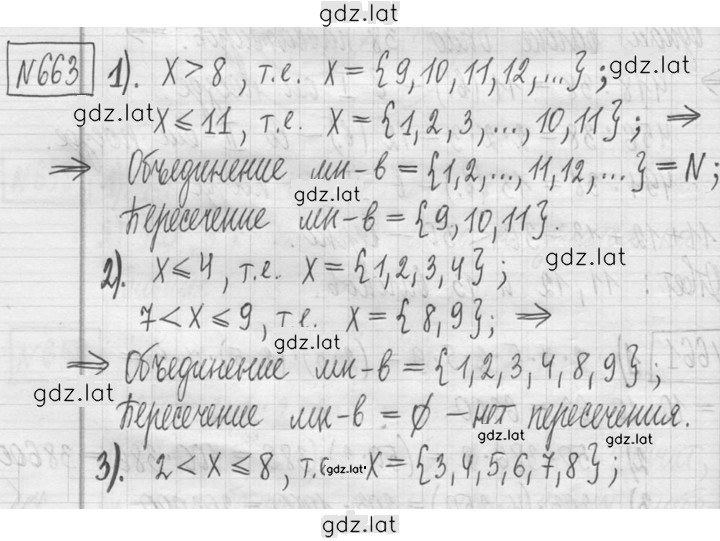 gdz.lat
№663 1). x > 8, т.е. x = {9, 10, 11, 12, ...}; gdz.lat
gdz.lat x ⩽ 11, т.е. x = {1, 2, 3, ..., 10, 11}; ⇒
⇒ Объединение мн-в = {1, 2, ..., 11, 12, ...} = N;
gdz.lat
Пересечение мн-в = {9, 10, 11}.
2). x ⩽ 4, т.е. x = {1, 2, 3, 4}; gdz.lat
7 < x ⩽ 9, т.е. x = {8, 9}; ⇒
gdz.lat
⇒ Объединение мн-в = {1, 2, 3, 4, 8, 9};
gdz.lat
Пересечение мн-в = ∅ – нет пересечения.
gdz.lat gdz.lat
3). 2 < x ⩽ 8, т.е. gdz.lat x = {3, 4, 5, 6, 7, 8};
gdz.lat